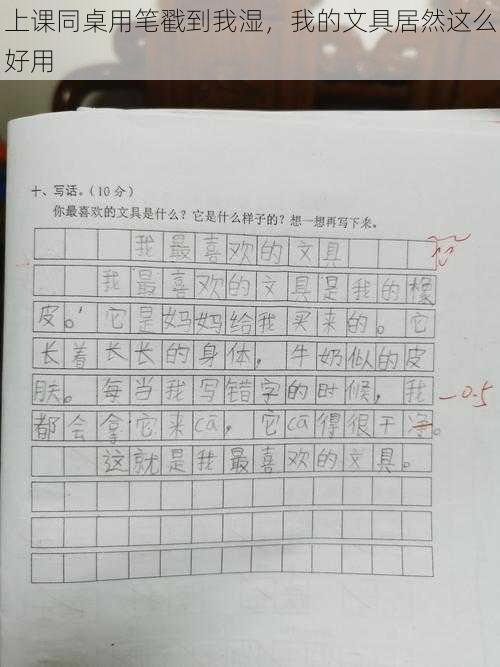 上课同桌用笔戳到我湿，我的文具居然这么
好用
十、写话。（10分）
你最喜欢的文具是什么？它是什么样子的？想一想再写下来。
我最喜欢的文具
我最喜欢的文具是我的橡
皮。它是妈妈给我买来的。它
长着长长的身体，牛奶似的皮
肤。每当我写错字的时候，我
-0.5
都会拿它来cā，它cā得很干净。
这就是我最喜欢的文具。